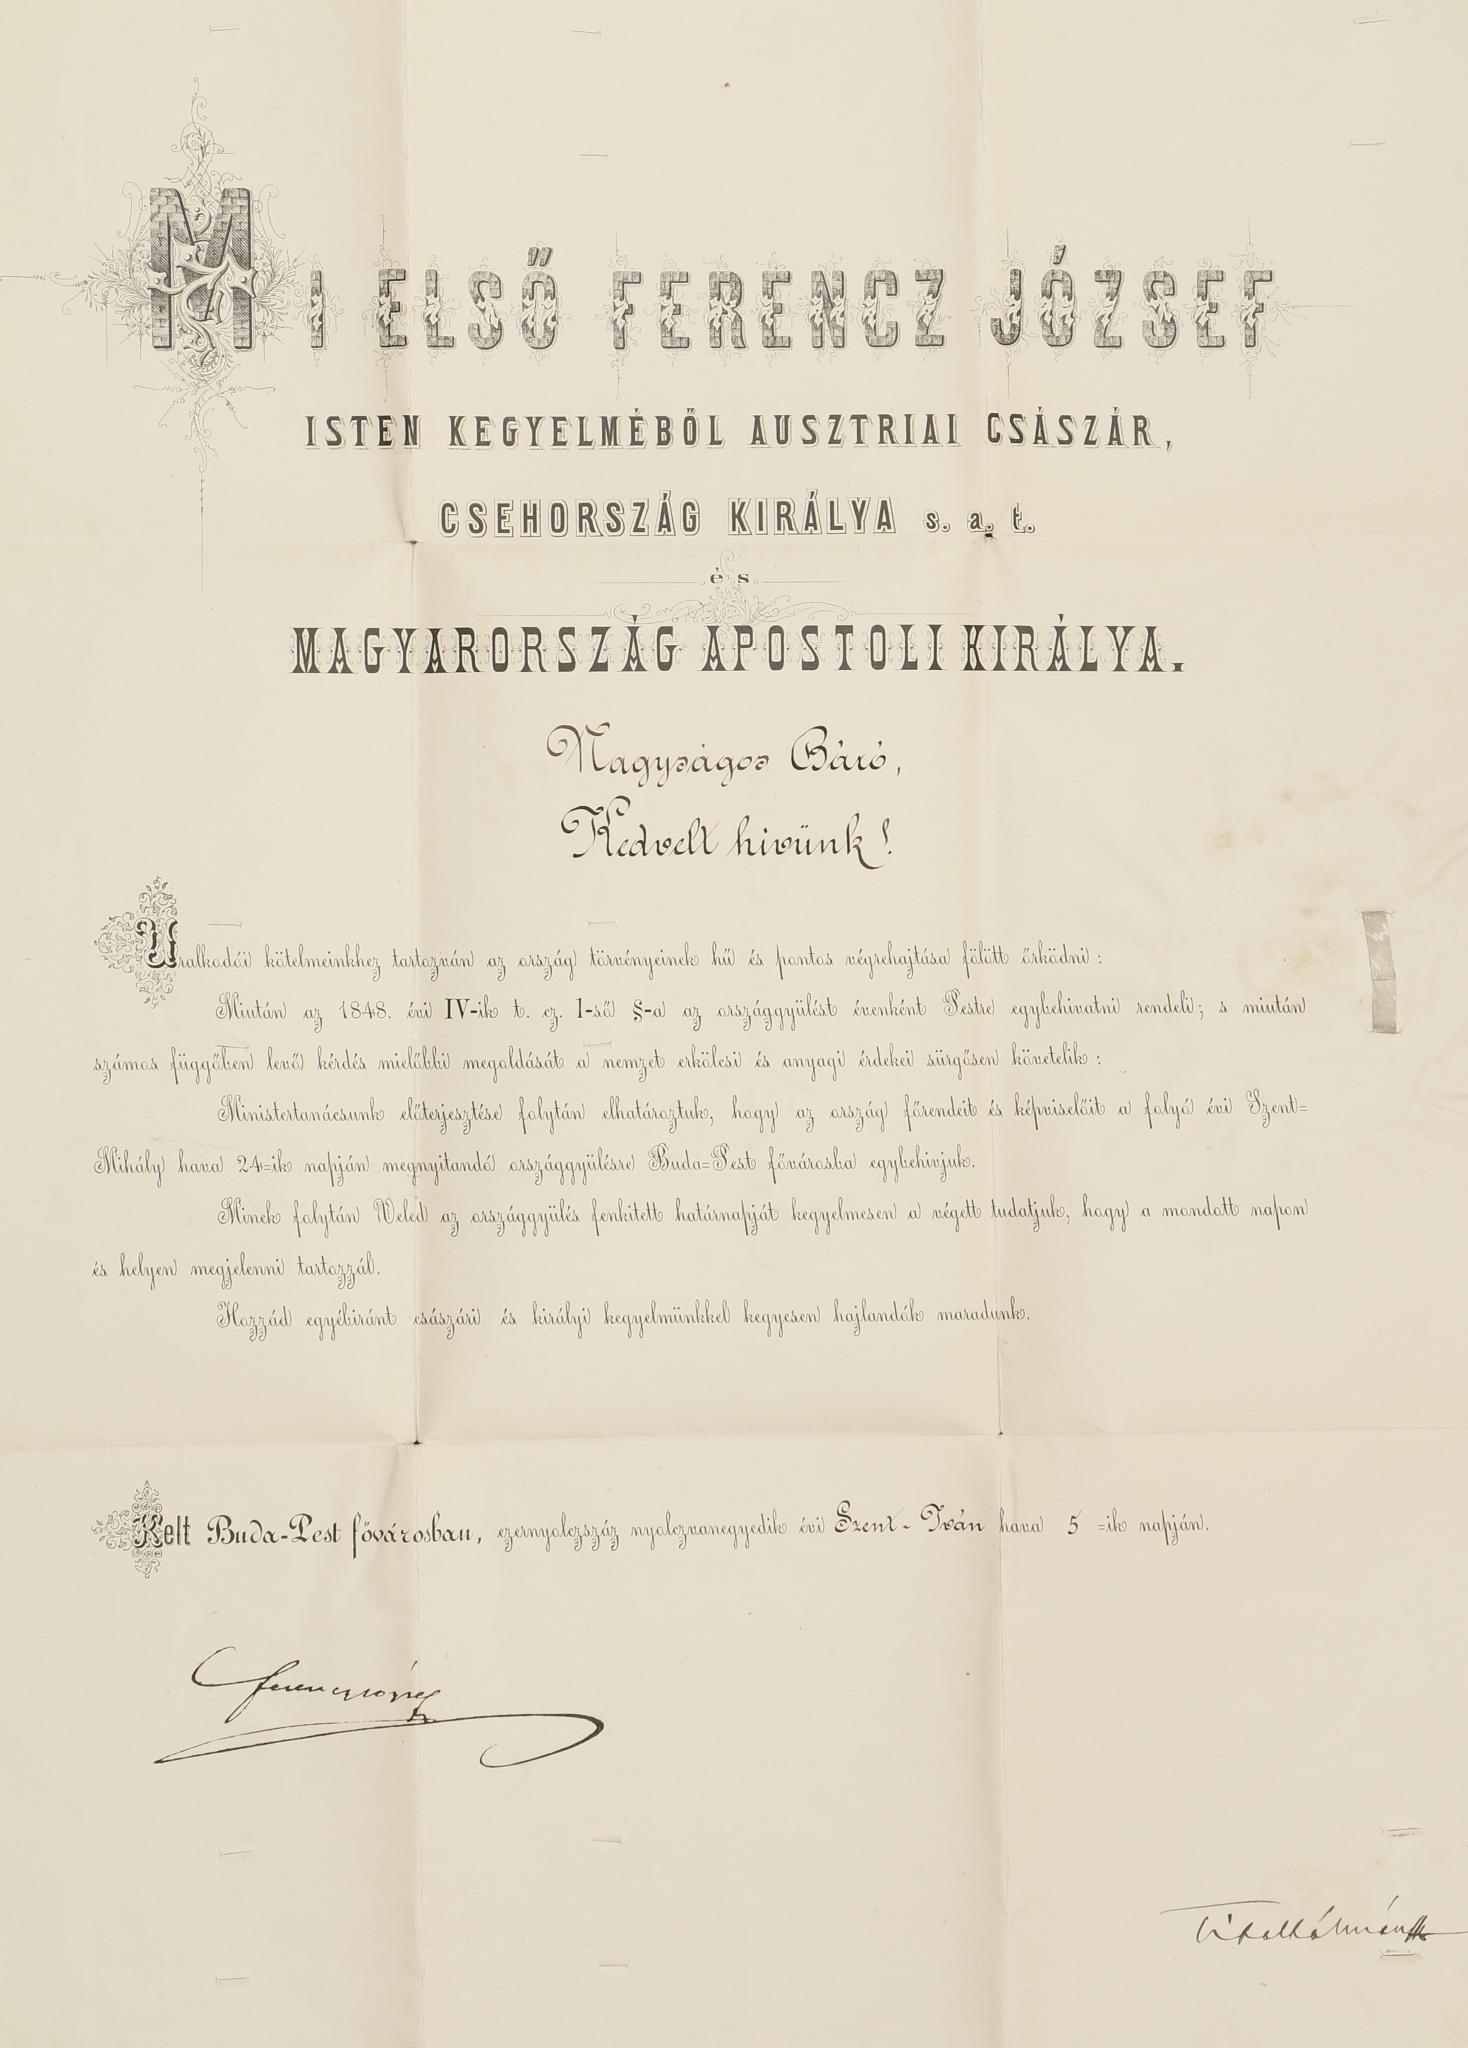 MI ELSŐ FERENCZ JÓZSEF
ISTEN KEGYELMÉBŐL AUSZTRIAI CSÁSZÁR,
CSEHORSZÁG KIRÁLYA s. a. t.
és
MAGYARORSZÁG APOSTOLI KIRÁLYA.
Nagyságos Báró,
Kedvelt hivünk!
Uralkodói kötelmeinkhez tartozván az ország törvényeinek hű és pontos végrehajtása fölött őrködni:
Miután az 1848. évi IV-ik t. cz. 1-ső §-a az országgyülést évenként Pestre egybehivatni rendeli; s miután
számos függőben levő kérdés mielőbbi megoldását a nemzet erkölcsi és anyagi érdekei sürgősen követelik:
Ministertanácsunk előterjesztése folytán elhatároztuk, hogy az ország főrendeit és képviselőit a folyó évi Szent=
Mihály hava 24=ik napján megnyitandó országgyülésre Buda=Pest fővárosba egybehivjuk.
Minek folytán Veled az országgyülés fenkitett határnapját kegyelmesen a végett tudatjuk, hogy a mondott napon
és helyen megjelenni tartozzál.
Hozzád egyébiránt császári és királyi kegyelmünkkel kegyesen hajlandók maradunk.
Kelt Buda-Pest fővárosban, ezernyolczszáz nyolczvanegyedik évi Szent-Iván hava 5=ik napján.
Ferencz József
Tisza Kálmán